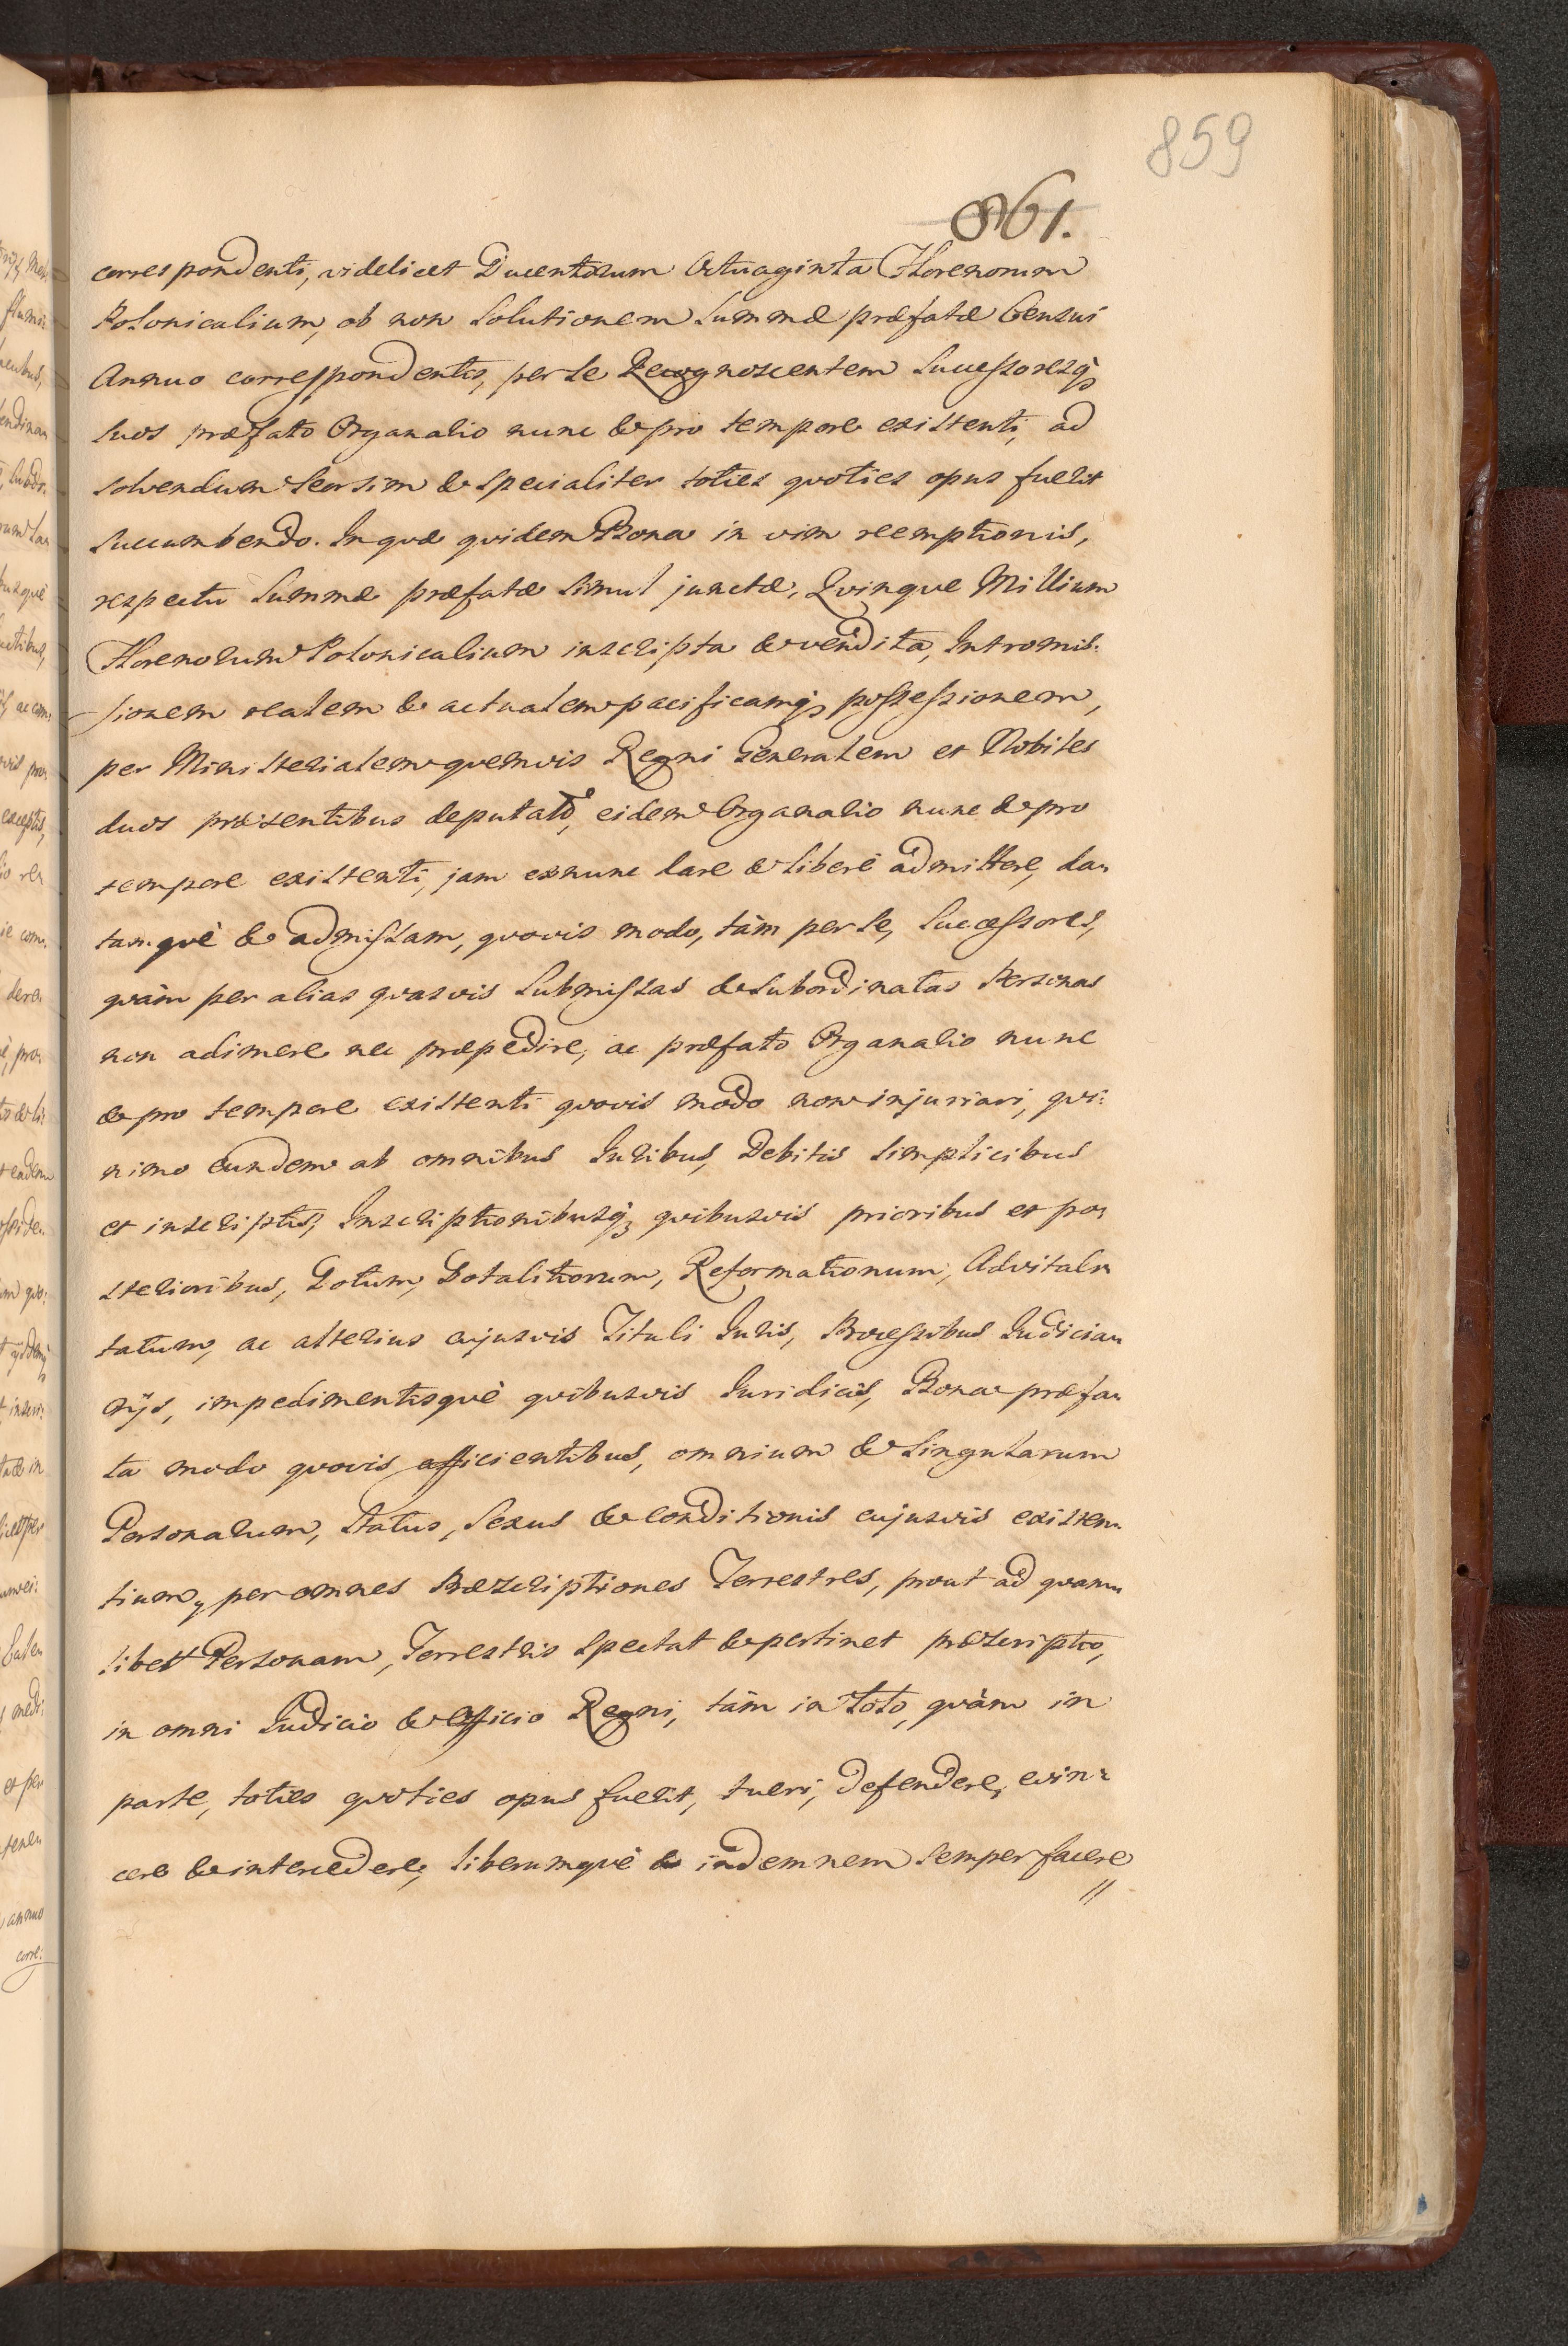 859
861.
correspondenti, videlicet Ducentorum Octuaginta Florenorum
Polonicalium, ob non Solutionem Summæ præfatæ Censui
Annuo correspondentis, per se Recognoscentem Successoresq̀
suos præfato Organario nunc & pro tempore existenti, ad
solvendum Seorsim & specialiter toties quoties opus fuerit
succumbendo. In quæ quidem Bona in vim reemptionis,
respectu Summæ præfatæ simul junctæ, Quinque Millium
Florenorum Polonicalium inscripta & vendita, Intromis:
sionem realem & actualem pacificamq̀ possessionem,
per Ministerialem quemvis Regni Generalem et Nobiles
duos præsentibus deputato, eidem Organario nunc & pro
tempore existenti, jam exnunc dare & liberè admittere, da-
tamquè & admissam, quovis modo, tàm per se, Successores,
quàm per alias quasvis Submissas & subordinatas Personas
non adimere nec præpedire, ac præfato Organario nunc
& pro tempore existenti quovis modo non injuriari, qui:
nimo eundem ab omnibus Iuribus, Debitis simplicibus
et inscriptis, Inscriptionibusq̀ quibusvis prioribus et po-
sterioribus, Dotum, Dotalitiorum, Reformationum, Advitali-
tatum, ac alterius cujusvis Tituli Iuris, Processibus Iudicia-
rijs, impedimentisquè quibusvis Iuridicis, Bona præfa-
ta modo quovis afficientibus, omnium & singularum
Personarum, Status, Sexus & conditionis cujusvis existen-
tium, per omnes Præscriptiones Terrestres, prout ad quam-
libet Personam, Terrestris spectat & pertinet præscriptio,
in omni Iudicio & Officio Regni, tàm in toto, quàm in
parte, toties quoties opus fuerit, tueri, defendere, evin:
cere & intercedere, liberumquè & indemnem semper facere
//
annuo
corre: